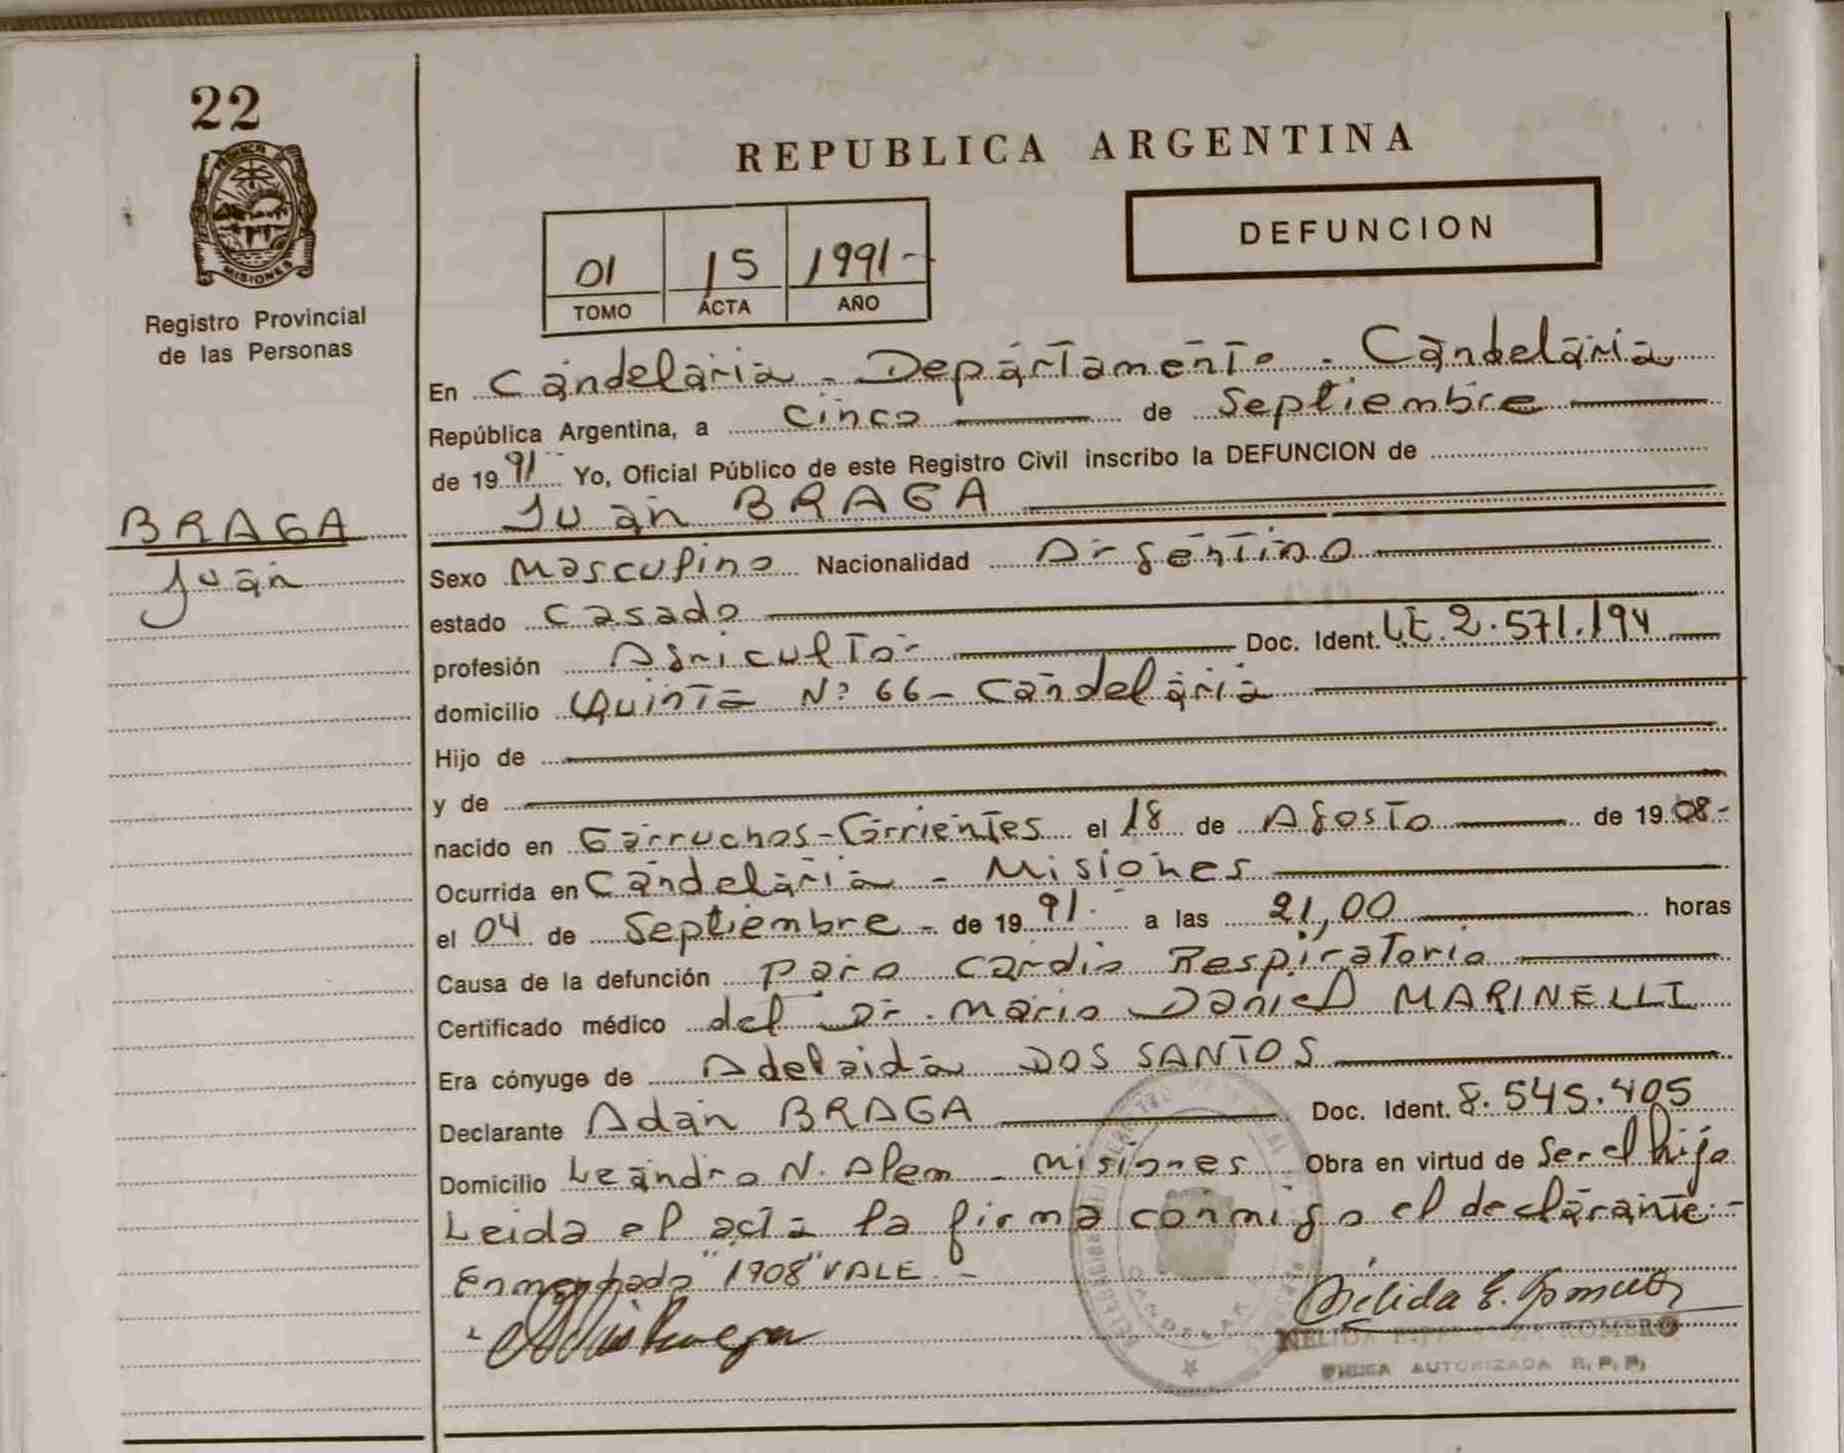 22
PROVINCIA
MISIONES
Registro Provincial
de las Personas
BRAGA
Juan
REPUBLICA ARGENTINA
01 15 1991-
TOMO ACTA AÑO
DEFUNCION
En Candelaria - Departamento - Candelaria
República Argentina, a cinco de Septiembre
de 1991 Yo, Oficial Público de este Registro Civil inscribo la DEFUNCION de
Juan BRAGA
Sexo Masculino Nacionalidad Argentino
estado Casado
profesión Agricultor Doc. Ident. L.E. 2.571.194
domicilio Quinta Nº 66 - Candelaria
Hijo de
y de
nacido en Garruchos-Corrientes el 18 de Agosto de 1908-
Ocurrida en Candelaria - Misiones
el 04 de Septiembre - de 1991.- a las 21,00 horas
Causa de la defunción Paro Cardio Respiratorio
Certificado médico del Dr. Mario Daniel MARINELLI
Era cónyuge de Adelaida DOS SANTOS
Declarante Adan BRAGA Doc. Ident. 8.545.405
Domicilio Leandro N. Alem - Misiones Obra en virtud de Ser el hijo
Leida el acta la firma conmigo el declarante.-
Enmendado "1908" VALE.-
Nélida E.
NELIDA ROMERO
AUTORIZADA R.P.P.